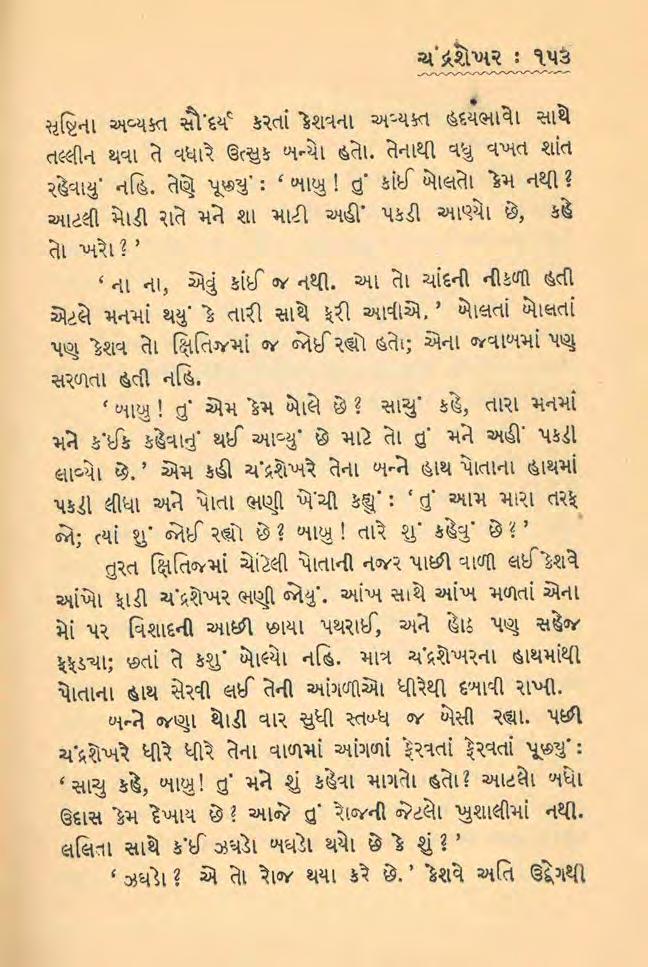 ચંદ્રશેખર : ૧૫૩
સૃષ્ટિના અવ્યક્ત સૌંદર્ય કરતાં કેશવના અવ્યક્ત હૃદયભાવો સાથે
તલ્લીન થવા તે વધારે ઉત્સુક બન્યો હતો. તેનાથી વધુ વખત શાંત
રહેવાયું નહિ. તેણે પૂછ્યું : ‘ બાબુ ! તું કાંઈ બોલતો કેમ નથી ?
આટલી મોડી રાતે મને શા માટી અહીં પકડી આણ્યો છે, કહે
તો ખરો ? ’
‘ ના ના, એવું કાંઈ જ નથી. આ તો ચાંદની નીકળી હતી
એટલે મનમાં થયું કે તારી સાથે ફરી આવીએ. ’ બોલતાં બોલતાં
પણ કેશવ તો ક્ષિતિજમાં જ જોઈ રહ્યો હતો; એના જવાબમાં પણ
સરળતા હતી નહિ.
‘ બાબુ ! તું એમ કેમ બોલે છે ? સાચું કહે, તારા મનમાં
મને કંઈક કહેવાનું થઈ આવ્યું છે માટે તો તું મને અહીં પકડી
લાવ્યો છે. ’ એમ કહી ચંદ્રશેખરે તેના બન્ને હાથ પોતાના હાથમાં
પકડી લીધા અને પોતા ભણી ખેંચી કહ્યું : ‘ તું આમ મારા તરફ
જો; ત્યાં શું જોઈ રહ્યો છે ? બાબુ ! તારે શું કહેવું છે ? ’
તુરત ક્ષિતિજમાં ચોંટેલી પોતાની નજર પાછી વાળી લઈ કેશવે
આંખો ફાડી ચંદ્રશેખર ભણી જોયું. આંખ સાથે આંખ મળતાં એના
મોં પર વિશાદની આછી છાયા પથરાઈ, અને હોઠ પણ સહેજ
ફફડયા; છતાં તે કશું બોલ્યો નહિ. માત્ર ચંદ્રશેખરના હાથમાંથી
પોતાના હાથ સેરવી લઈ તેની આંગળીઓ ધીરેથી દબાવી રાખી.
બન્ને જણા થોડી વાર સુધી સ્તબ્ધ જ બેસી રહ્યા. પછી
ચંદ્રશેખરે ધીરે ધીરે તેના વાળમાં આંગળાં ફેરવતાં ફેરવતાં પૂછ્યું :
‘ સાચું કહે, બાબુ! તું મને શું કહેવા માગતો હતો? આટલો બધો
ઉદાસ કેમ દેખાય છે ? આજે તું રોજની જેટલો ખુશાલીમાં નથી.
લલિતા સાથે કંઈ ઝઘડો બઘડો થયો છે કે શું ? ’
‘ ઝઘડો ? એ તો રોજ થયા કરે છે. ’ કેશવે અતિ ઉદ્વેગથી